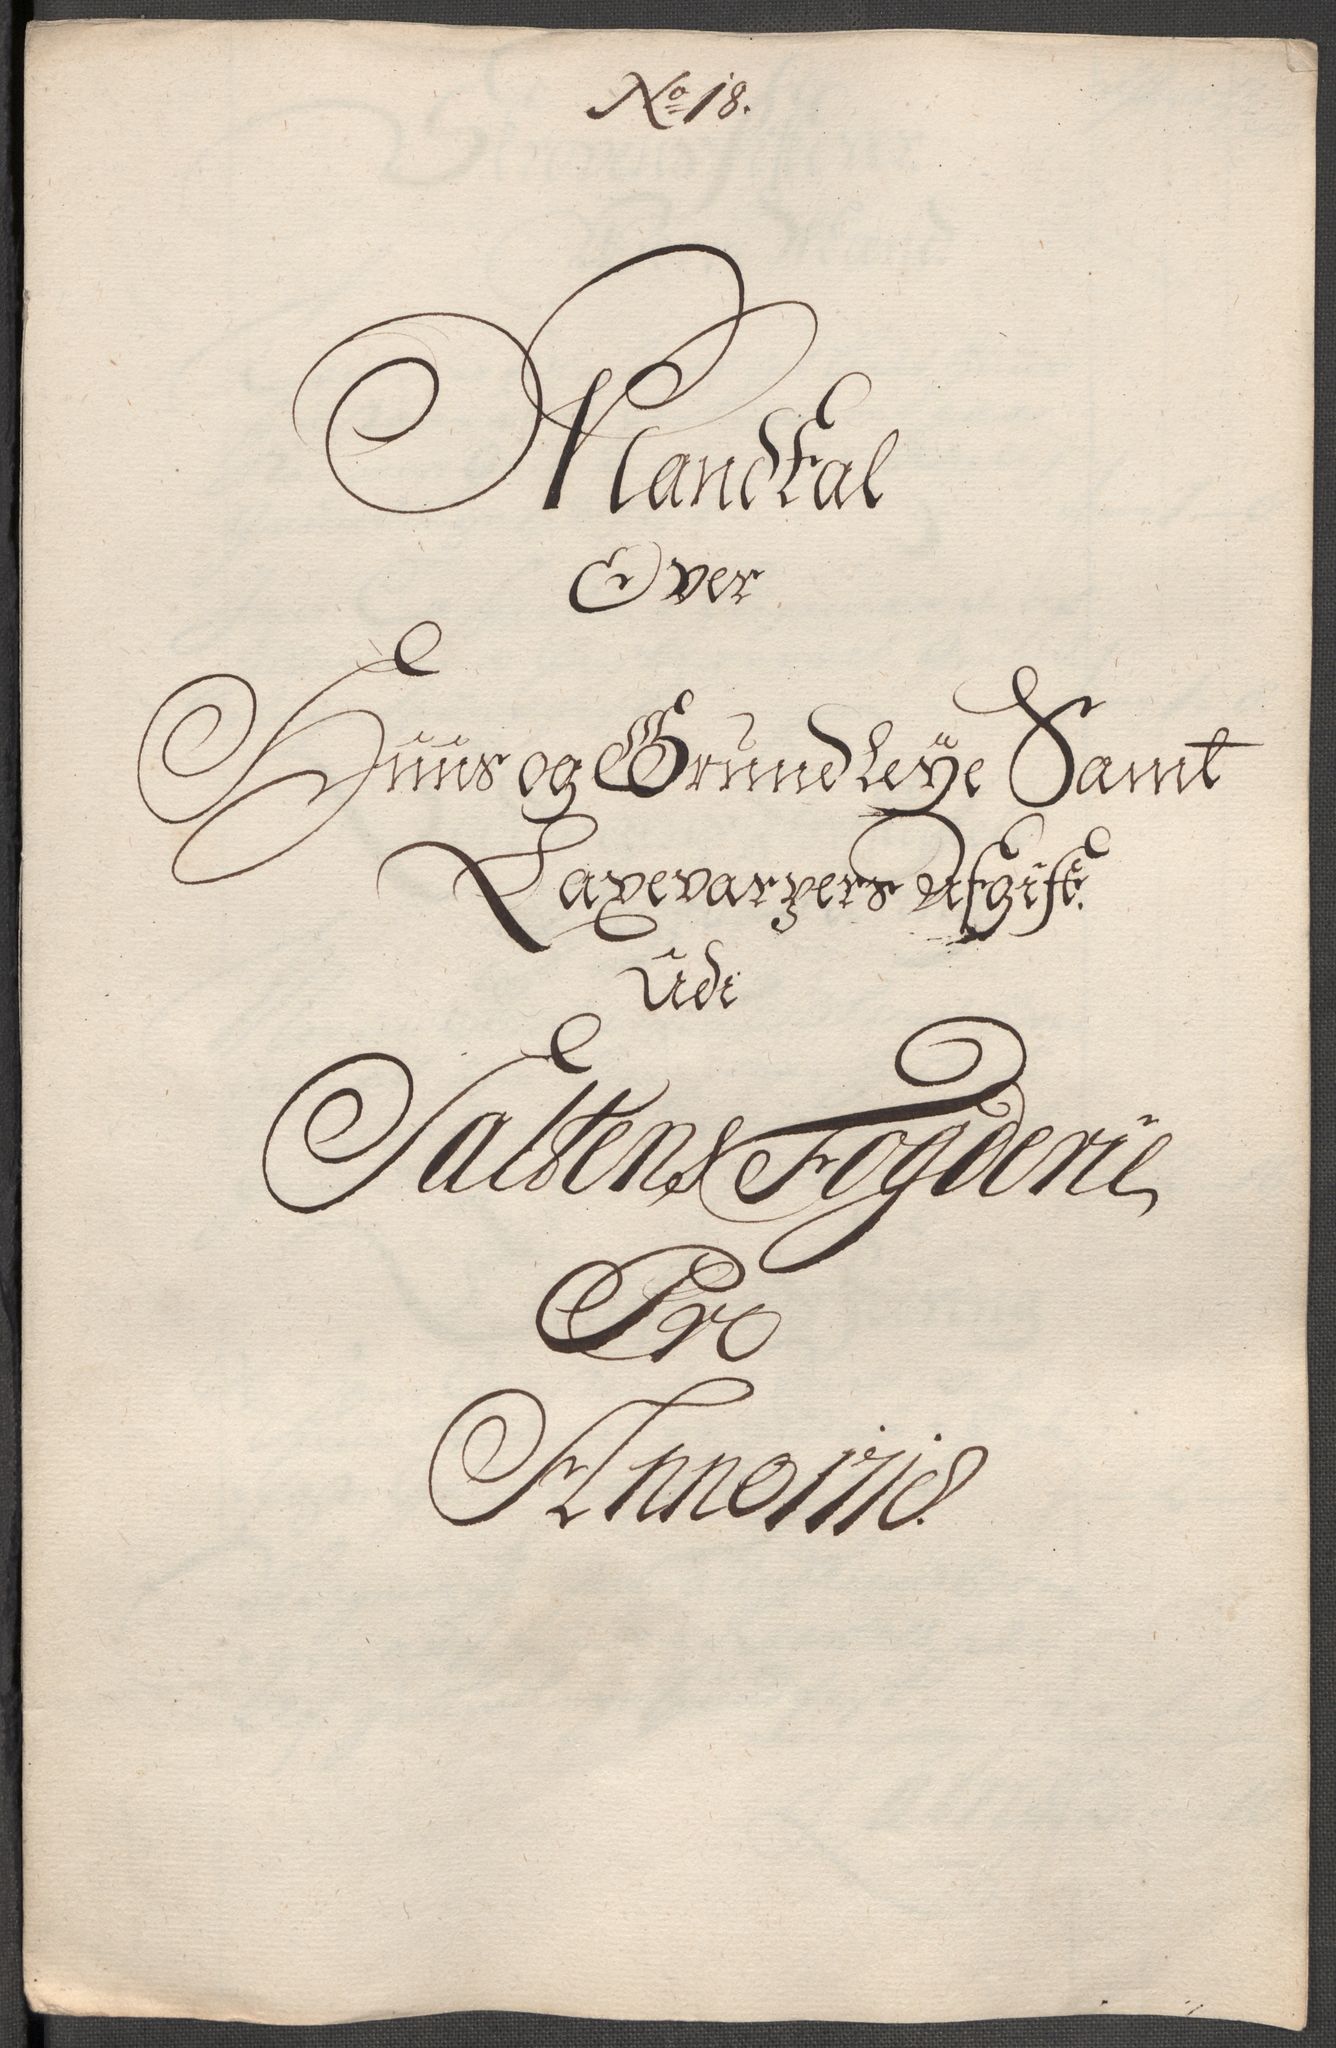 No 18.
Mandtal
Over
Huus og Grundleye Samt
Laxevarpers Afgift.
Udi
Saltens Fogderie
Pro
Anno 1718.